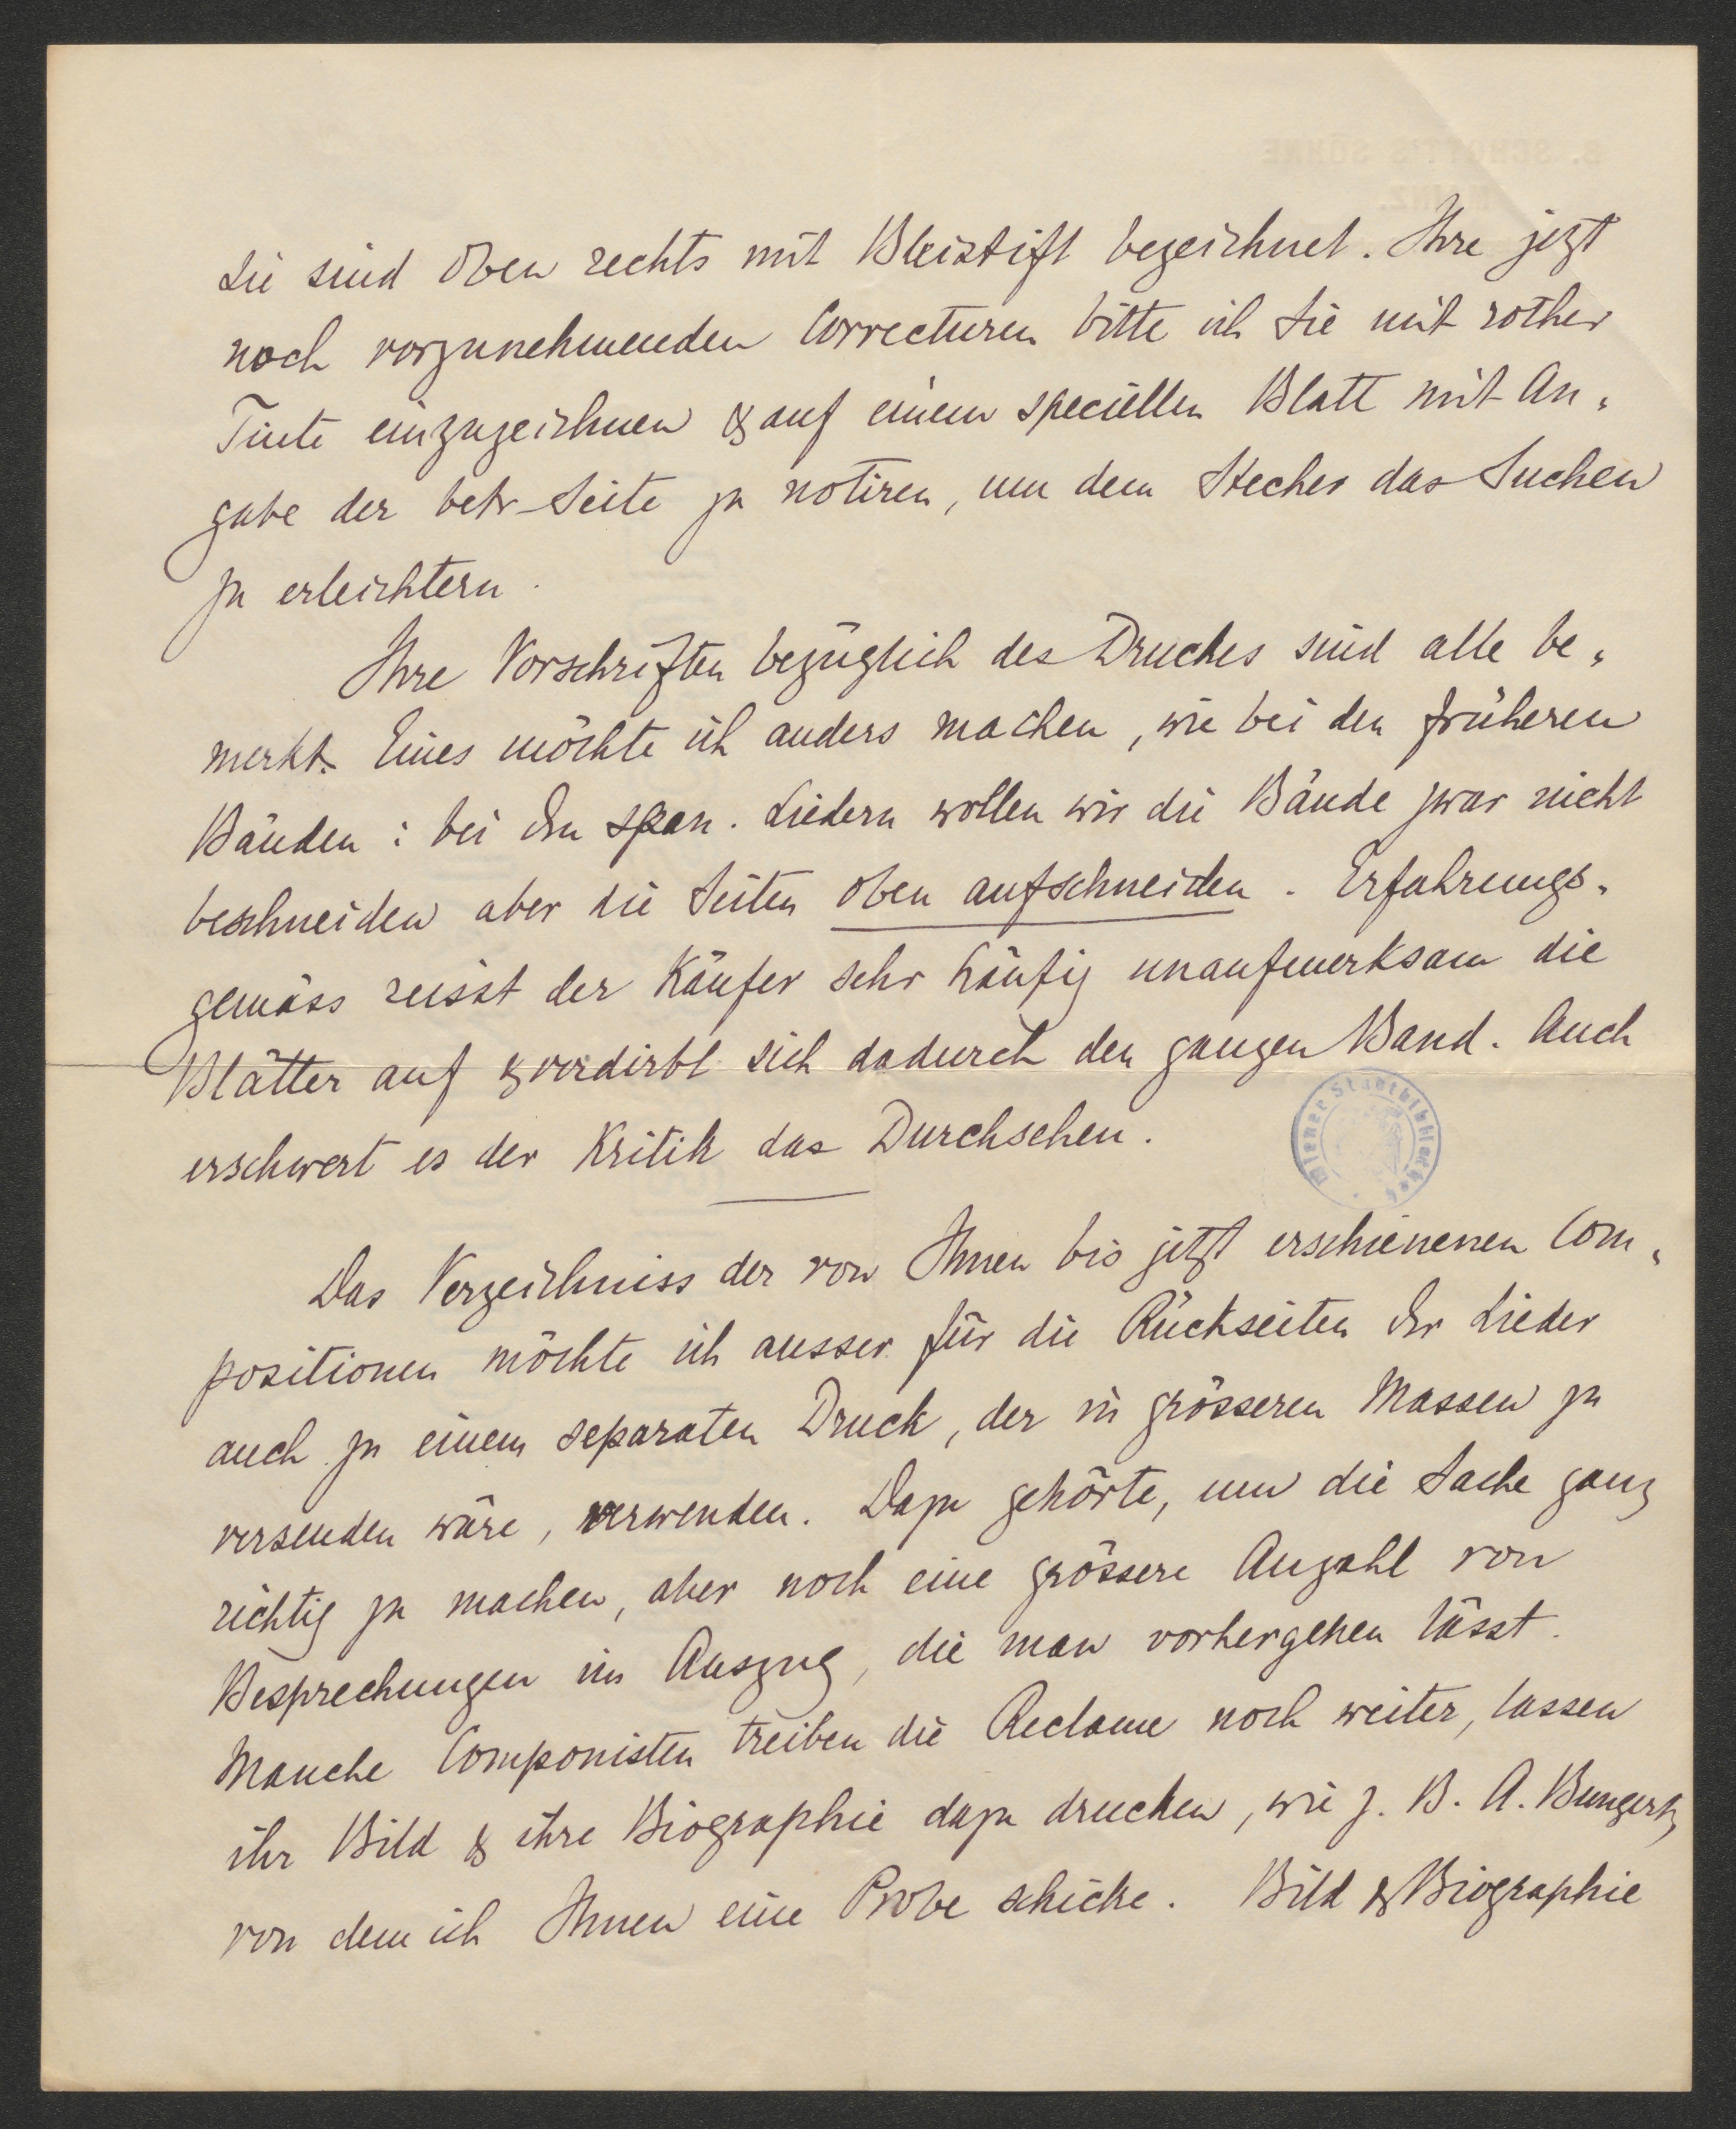 Sie sind oben rechts mit Bleistift bezeichnet. Ihre jetzt
noch vorzunehmenden Correcturen bitte ich Sie mit rother
Tinte einzuzeichnen & auf einem speciellen Blatt mit An-
gabe der betr Seite zu notiren, um dem Stecher das Suchen
zu erleichtern.
Ihre Vorschriften bezüglich des Druckes sind alle be-
merkt. Eines möchte ich anders machen, wie bei den früheren
Bänden: bei den span. Liedern wollen wir die Bände zwar nicht
beschneiden aber die Seiten oben aufschneiden. Erfahrungs-
gemäss reisst der Käufer sehr häufig unaufmerksam die
Blätter auf & verdirbt sich dadurch den ganzen Band. Auch
erschwert es der Kritik das Durchsehen.
Wiener Stadtbibliothek
Das Verzeichniss der von Ihnen bis jetzt erschienenen Com-
positionen möchte ich ausser für die Rückseiten der Lieder
auch zu einem separaten Druck, der in grösseren Massen zu
versenden wäre, verwenden. Dazu gehörte, um die Sache ganz
richtig zu machen, aber noch eine grössere Anzahl von
Besprechungen im Auszug, die man vorhergehen lässt.
Manche Componisten treiben die Reclame noch weiter, lassen
ihr Bild & ihre Biographie dazu drucken, wie z. B. A. Bungert,
von dem ich Ihnen eine Probe schicke. Bild & Biographie